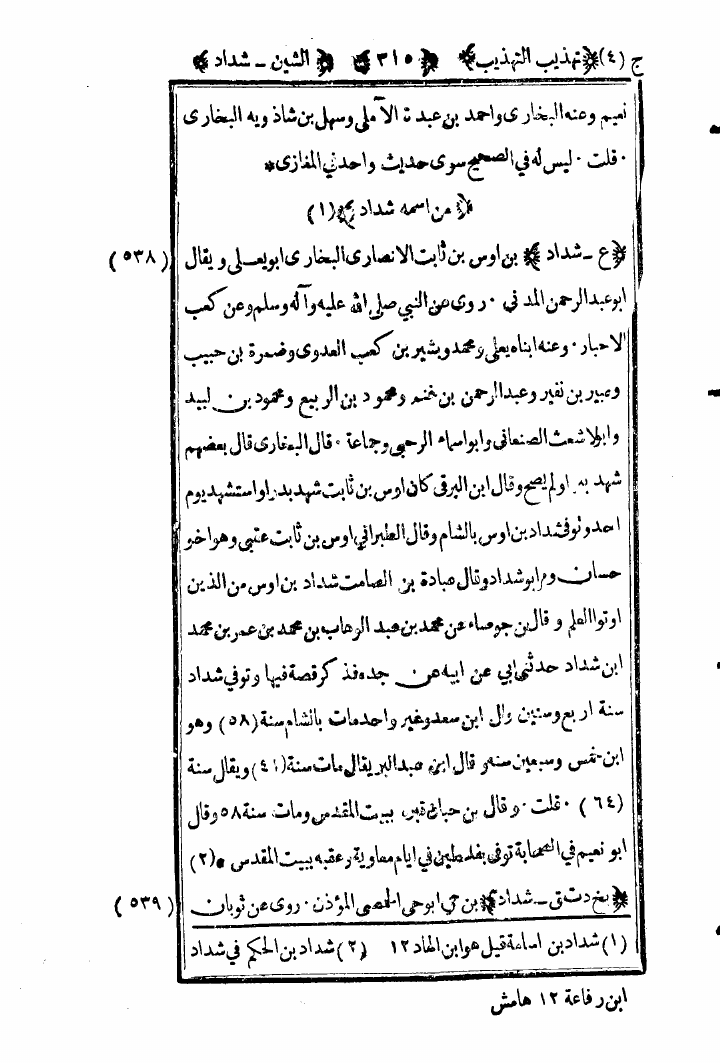 ج (٤) ﴿تهذيب التهذيب﴾ ﴿٣١٥﴾ ﴿الشين - شداد﴾
نعيم وعنه البخارى واحمد بن عبدة الآملى وسهل بن شاذويه البخارى
٠ قلت ٠ ليس له في الصحيح سوى حديث واحد في المغازى*
﴿من اسمه شداد﴾ (١)
﴿ع - شداد﴾ بن اوس بن ثابت الانصارى البخارى ابو يعلى ويقال (٥٣٨)
ابو عبد الرحمن المدني ٠ روى عن النبي صلى الله عليه وآله وسلم وعن كعب
الاحبار ٠ وعنه ابناه يعلى ومحمد وبشير بن كعب العدوى وضمرة بن حبيب
وجبير بن نفير وعبد الرحمن بن غنم ومحمود بن الربيع ومحمود بن لبيد
وابو الاشعث الصنعاني وابو اسماء الرحبي وجماعة ٠ قال البخارى قال بعضهم
شهد بدرا ولم يصح وقال ابن البرقى كان اوس بن ثابت شهد بدرا واستشهد يوم
احد وتوفي شداد بن اوس بالشام وقال الطبراني اوس بن ثابت عقبي وهو اخو
حسان وابو شداد وقال عبادة بن الصامت شداد بن اوس من الذين
اوتوا العلم و قال بن جوصاء عن محمد بن عبد الوهاب بن محمد بن عمر بن محمد
ابن شداد حدثني ابي عن ابيه عن جده فذكر قصة فيها وتوفي شداد
سنة اربع وستين وقال ابن سعد وغير واحد مات بالشام سنة (٥٨) وهو
ابن خمس وسبعين سنة و قال ابن عبد البر يقال مات سنة (٤١) ويقال سنة
(٦٤) ٠ قلت ٠ وقال بن حبان قبره ببيت المقدس ومات سنة ٥٨ وقال
ابو نعيم في الصحابة توفى بفلسطين في ايام معاوية وعقبه ببيت المقدس * (٢)
﴿بخ دت ق - شداد﴾ بن حي ابو حي الحمصى المؤذن ٠ روى عن ثوبان (٥٣٩)
(١) شداد بن اسامة قيل هو ابن الهاد ١٢ (٢) شداد بن الحكم في شداد
ابن رفاعة ١٢ هامش